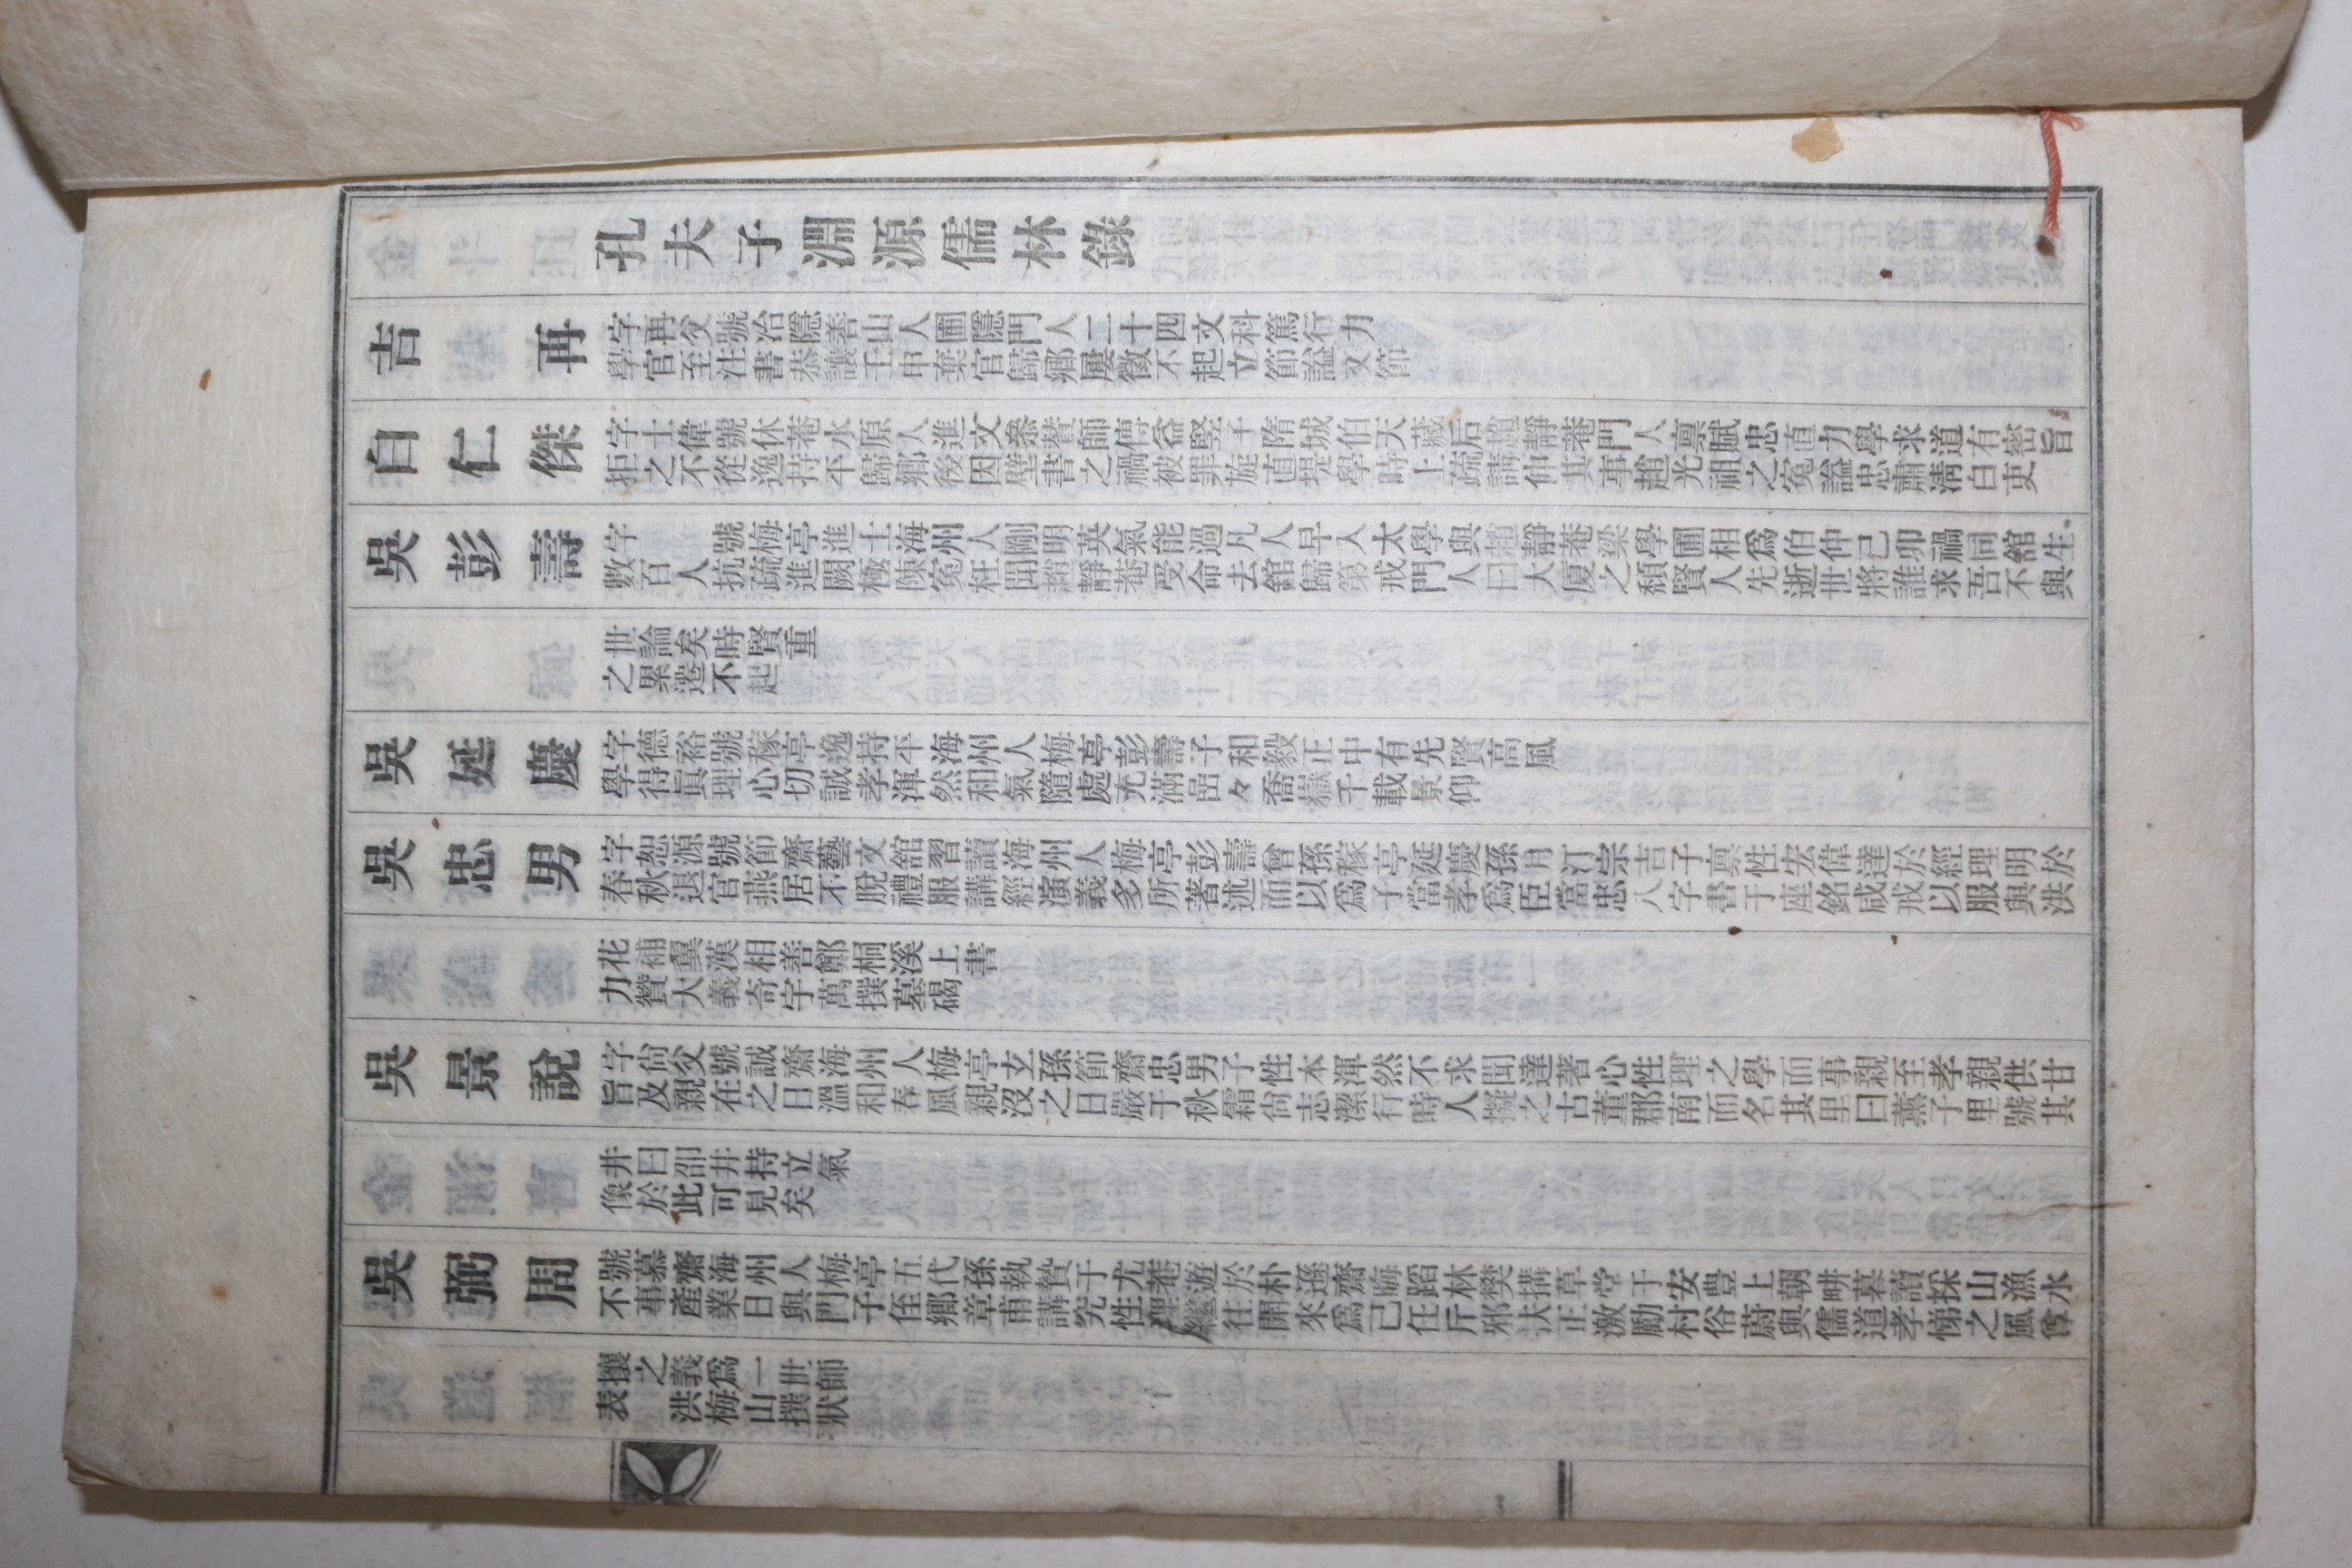 孔夫子淵源儒林錄
吉再
字再父號冶隱善山人圃隱門人二十四文科篤行力
學官至注書恭讓壬申棄官歸鄕屢徵不起立節謚文節
白仁傑
字士偉號休菴水原人進文叅賛師傅益竪子隋城伯天藏后趙靜菴門人禀賦忠直力學求道有密旨
拒之不從逸持平歸鄕後因壁書之禍被罪旋直堤學時上疏請伸其事趙光祖之寃謚忠肅淸白吏
吳彭壽
字 號梅亭進士海州人剛明英氣能過凡人早入太學與趙靜菴梁學圃相爲伯仲己卯禍同舘生
數百人抗疏進闕極陳寃枉聞趙靜菴受命去舘歸第戒門人曰大厦之頹賢人先逝世將誰求吾不與
世論矣時賢重
之累遷不起
吳延慶
字德裕號稼亭逸持平海州人梅亭彭壽子和毅正中有先賢高風
學得眞理心切誠孝渾然和氣隨處充滿嵒々喬嶽千載景仰
吳忠男
字恕源號節齋藝文舘習讀海州人梅亭彭壽曾孫稼亭延慶孫月汀宗吉子禀性宏偉達於經理明於
春秋退官燕居不脫禮服講經演義多所著述而以爲子當孝爲臣當忠八字書于座銘咸戒以服與洪
花補翼漢相善鄭桐溪上書
力贊大義奇宇萬撰墓碣
吳景說
字尙父號誠齋海州人梅亭玄孫節齋忠男子性本渾然不求聞達著心性理之學而事親至孝親供甘
旨及親在之日溫和春風親沒之日嚴于秋霜尙志潔行時人擬之古董郡南而名其里曰薰子里號其
井曰卲井持立氣
像於此可見矣
吳弼周
號慕齋海州人梅亭五代孫執贄于尤菴遊於朴遜齋晦蹈林樊搆草堂于安豊上朝畊暮讀採山漁水
不事產業日與門子侄鄕章甫講究性理繼往開來爲己任斤邪扶正激勵村俗蔚與儒道孝悌之風尊
攘之義爲一世師
表 洪梅山撰狀